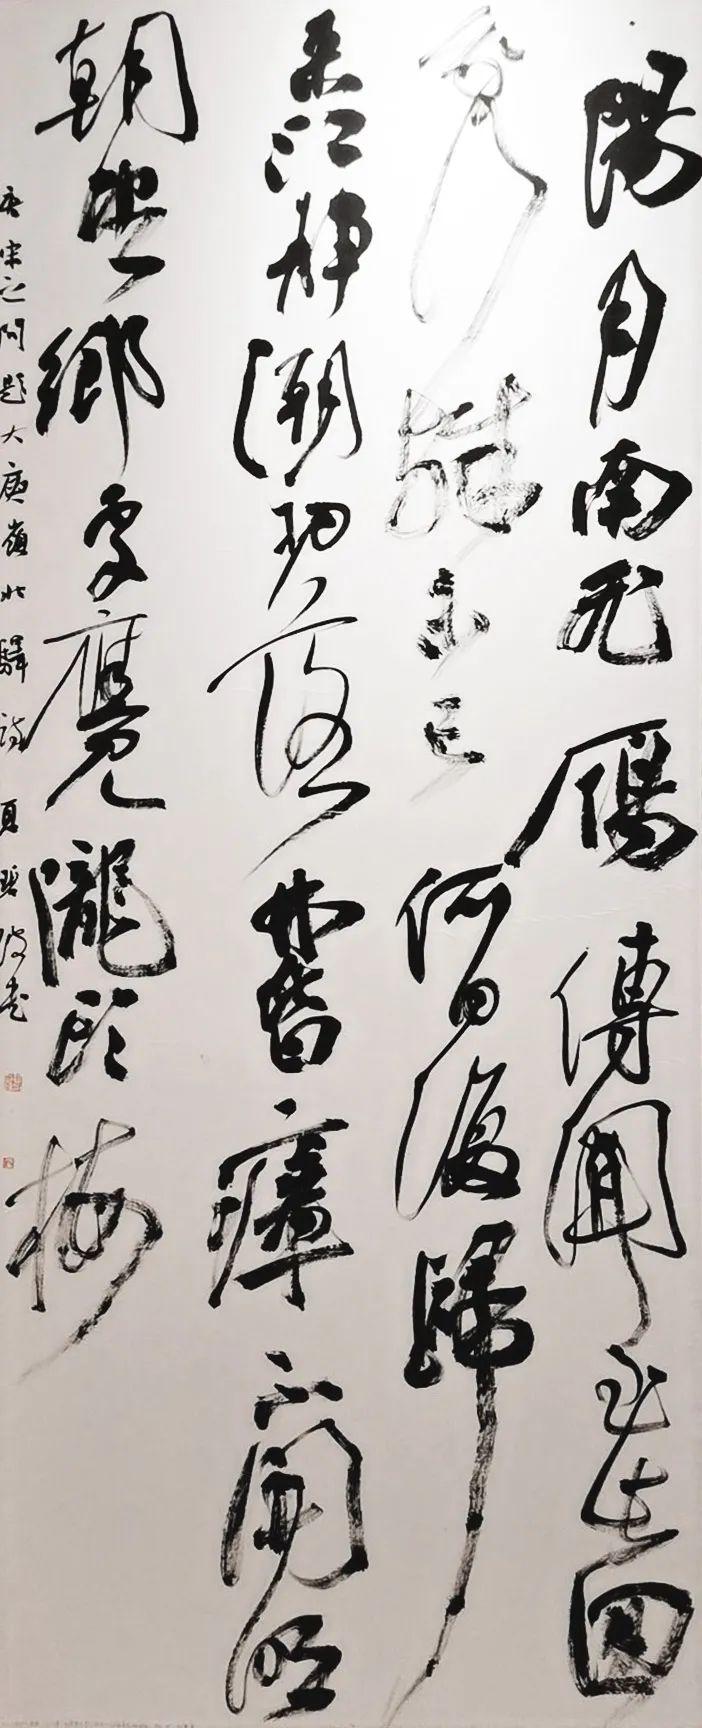 陽月南飛雁傳聞至此回
我行殊未已何日復歸
來江靜潮初落林昏瘴不開明
朝望鄉處應見隴頭梅
唐宋之問題大庾嶺北驛詩 夏碧波書